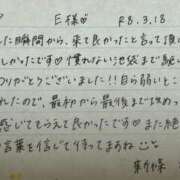 E様♡ R8.3.18
した瞬間から、来て良かったと言って頂
しかったです♡慣れない池袋まで
りがとうございました!!自ら弱いとこ
れたので、最初から最後まで攻め
感じてもらえて良かったです♡また絶
言葉を信じて待ってますね
新條